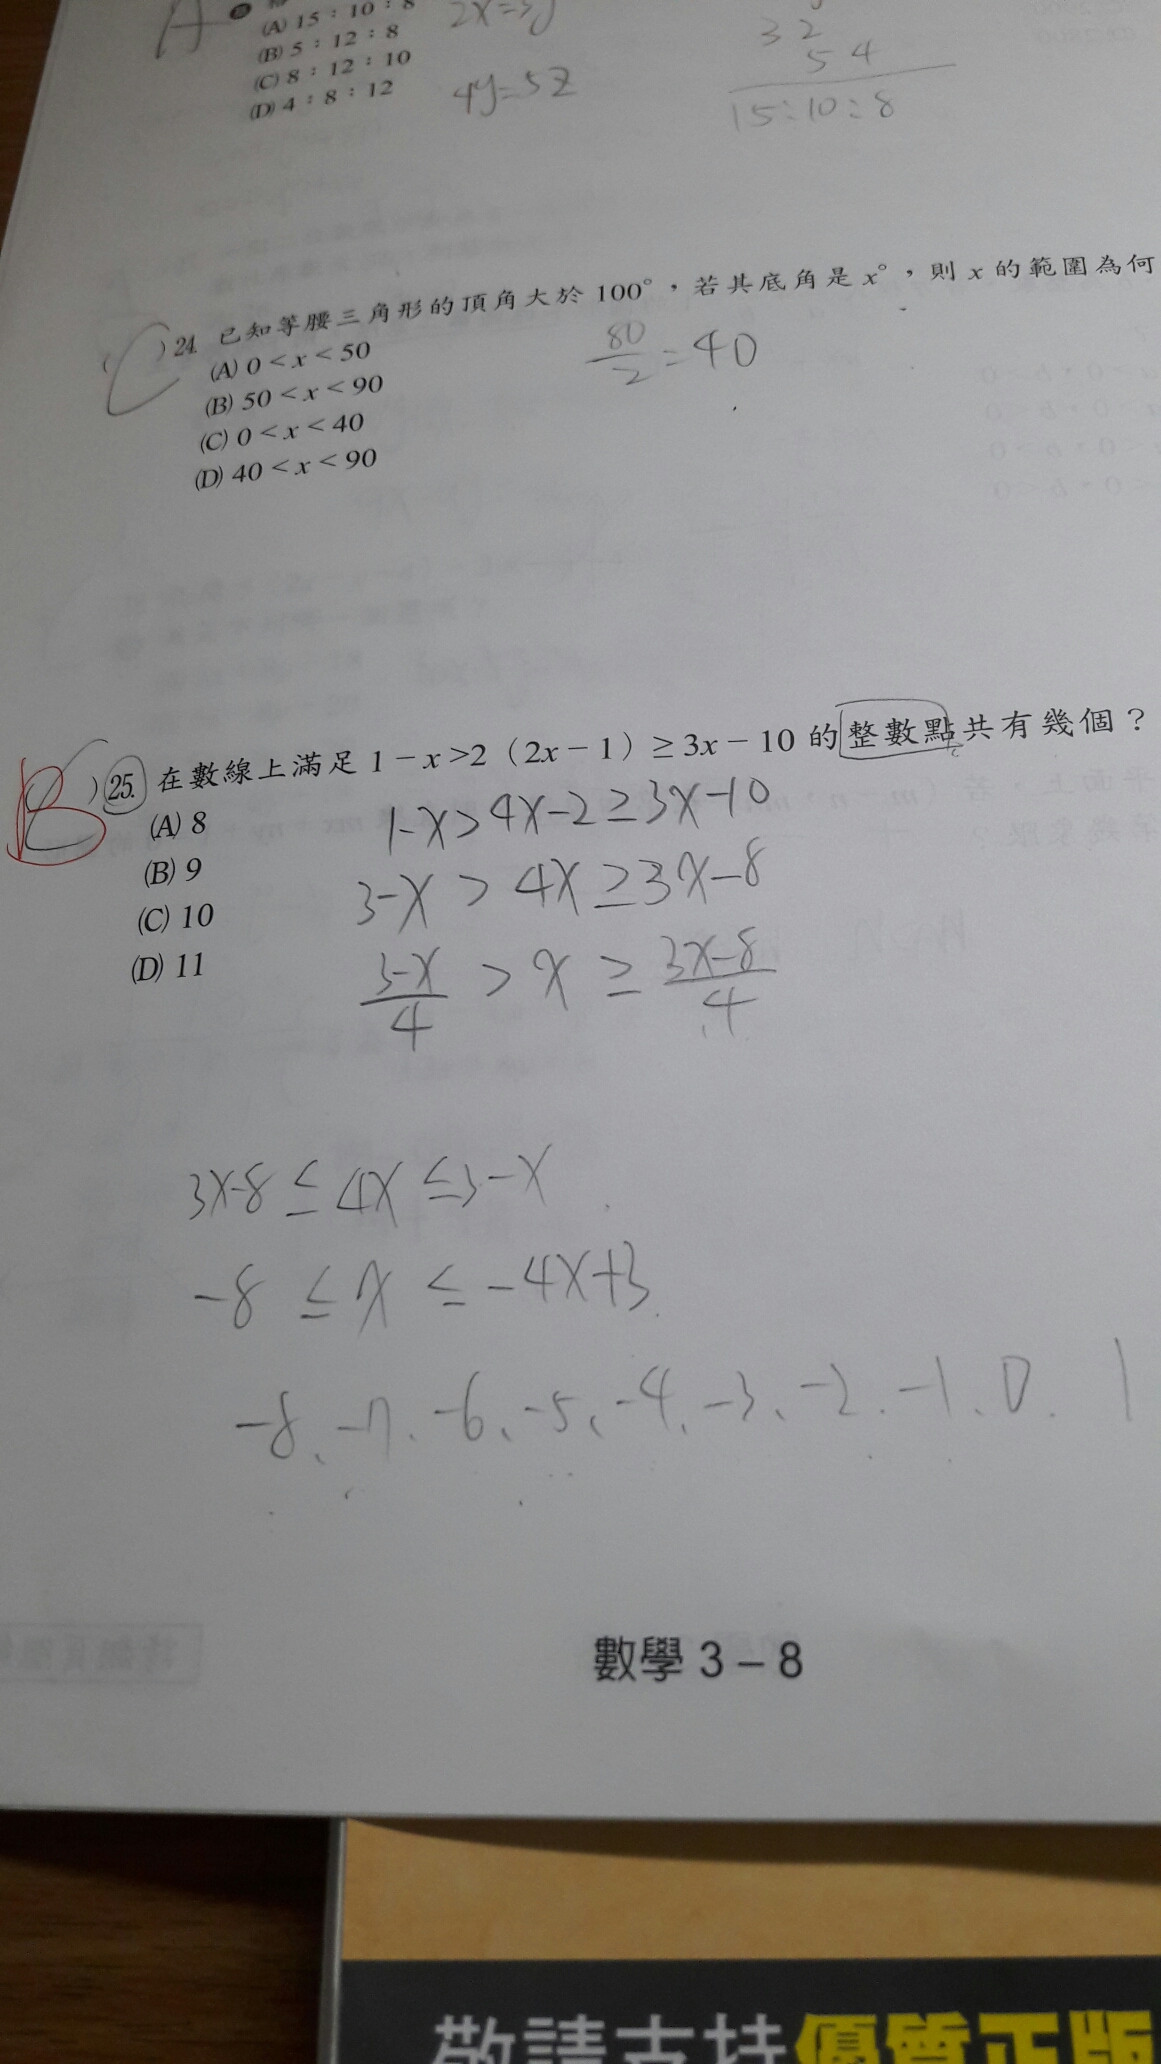 A
(A) 15：10：8
2x=3y
(B) 5：12：8
3 2
(C) 8：12：10
5 4
(D) 4：8：12
4y=5z
15：10：8
( C ) 24. 已知等腰三角形的頂角大於 100°，若其底角是 x°，則 x 的範圍為何
(A) 0 < x < 50
80/2 = 40
(B) 50 < x < 90
(C) 0 < x < 40
(D) 40 < x < 90
B ) 25. 在數線上滿足 1 − x > 2（2x − 1）≥ 3x − 10 的整數點共有幾個？
(A) 8
1-x > 4x-2 ≥ 3x-10
(B) 9
3-x > 4x ≥ 3x-8
(C) 10
(D) 11
3-x/4 > x ≥ 3x-8/4
3x-8 ≤ 4x ≤ 3-x
-8 ≤ x ≤ -4x+3
-8、-7、-6、-5、-4、-3、-2、-1、0、1
數學 3 − 8
敬請支持優質正版